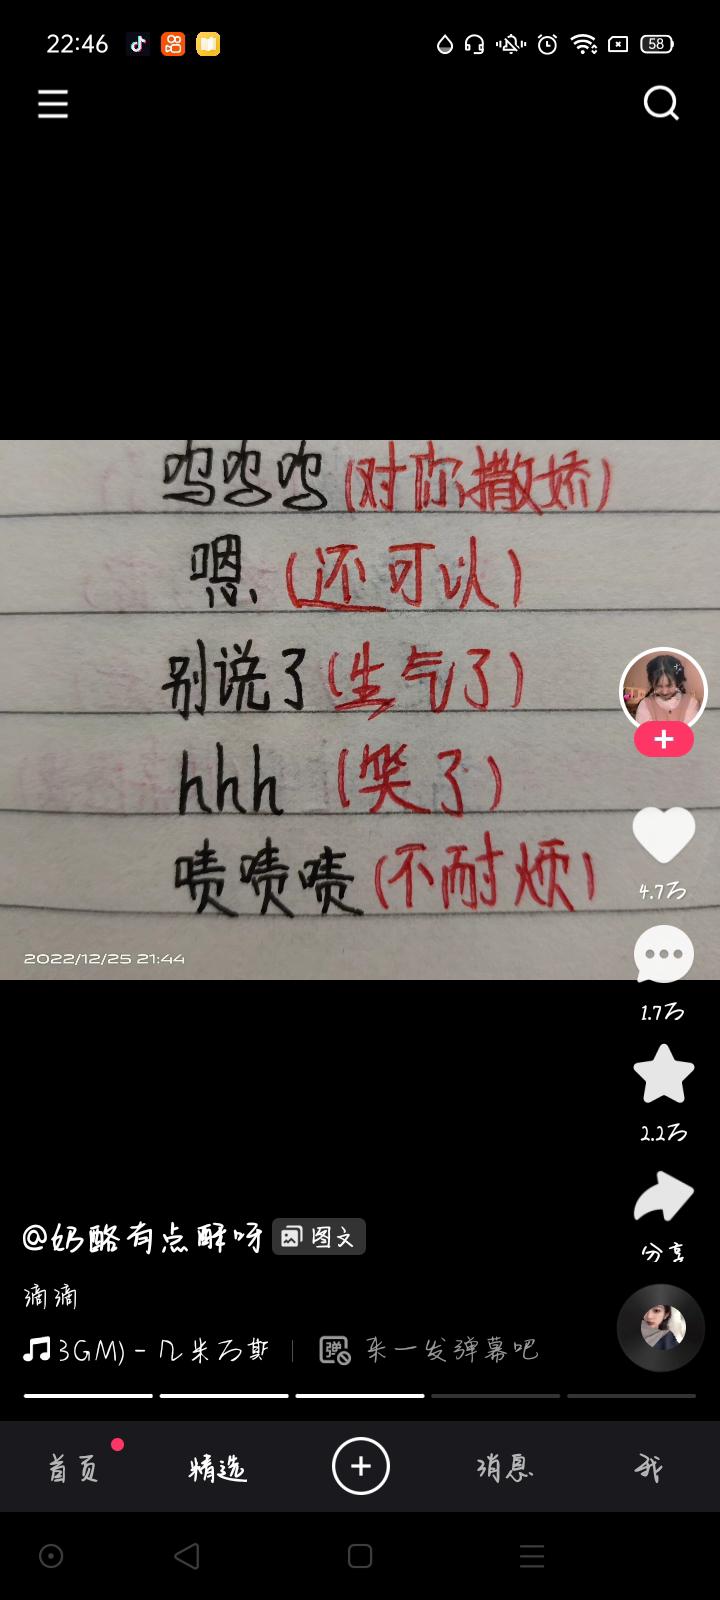 22:46
58
呜呜呜(对你撒娇)
嗯(还可以)
别说了(生气了)
hhh (笑了)
啧啧啧(不耐烦)
2022/12/25 21:44
4.7万
1.7万
2.2万
分享
@奶酪有点酥呀 图文
滴滴
3GM) - 几米万斯 弹 来一发弹幕吧
首页 精选 消息 我